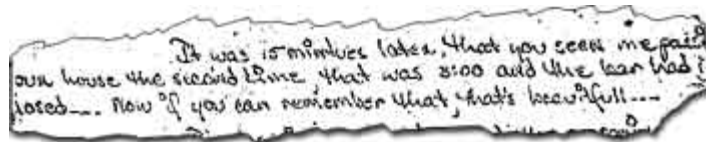 It was 15 mintues later, that you seen me
our house the second time, that was 3:00 and the bar had
losed--- Now if you can remember that, that's beautifull---